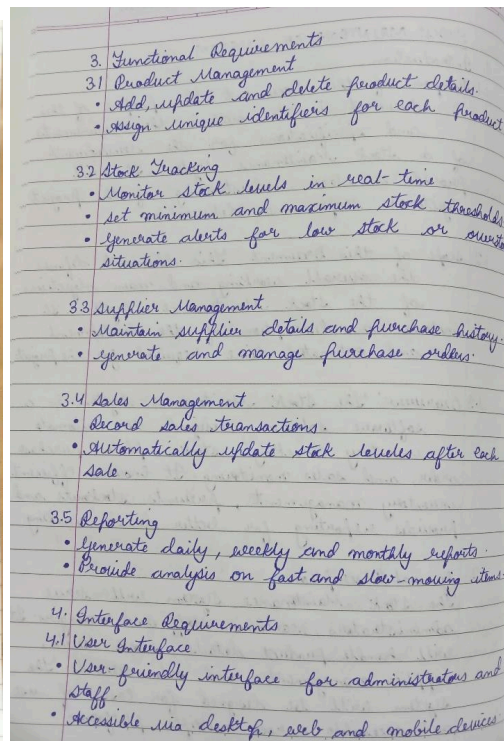 3. Functional Requirements
3.1 Product Management
• Add, update and delete product details.
• Assign unique identifiers for each product
3.2 Stock Tracking
• Monitor stock levels in real-time
• set minimum and maximum stock thresholds
• generate alerts for low stock or oversto
situations.
3.3 supplier Management
• Maintain supplier details and purchase history.
• generate and manage purchase orders.
3.4 sales Management.
• Record sales transactions.
• Automatically update stock leveles after each
sale.
3.5 Reporting
• generate daily, weekly and monthly reports.
• Provide analysis on fast and slow-moving items.
4. Interface Requirements
4.1 User Interface
• User-friendly interface for administrators and
staff.
• Accessible via desktop, web and mobile devices